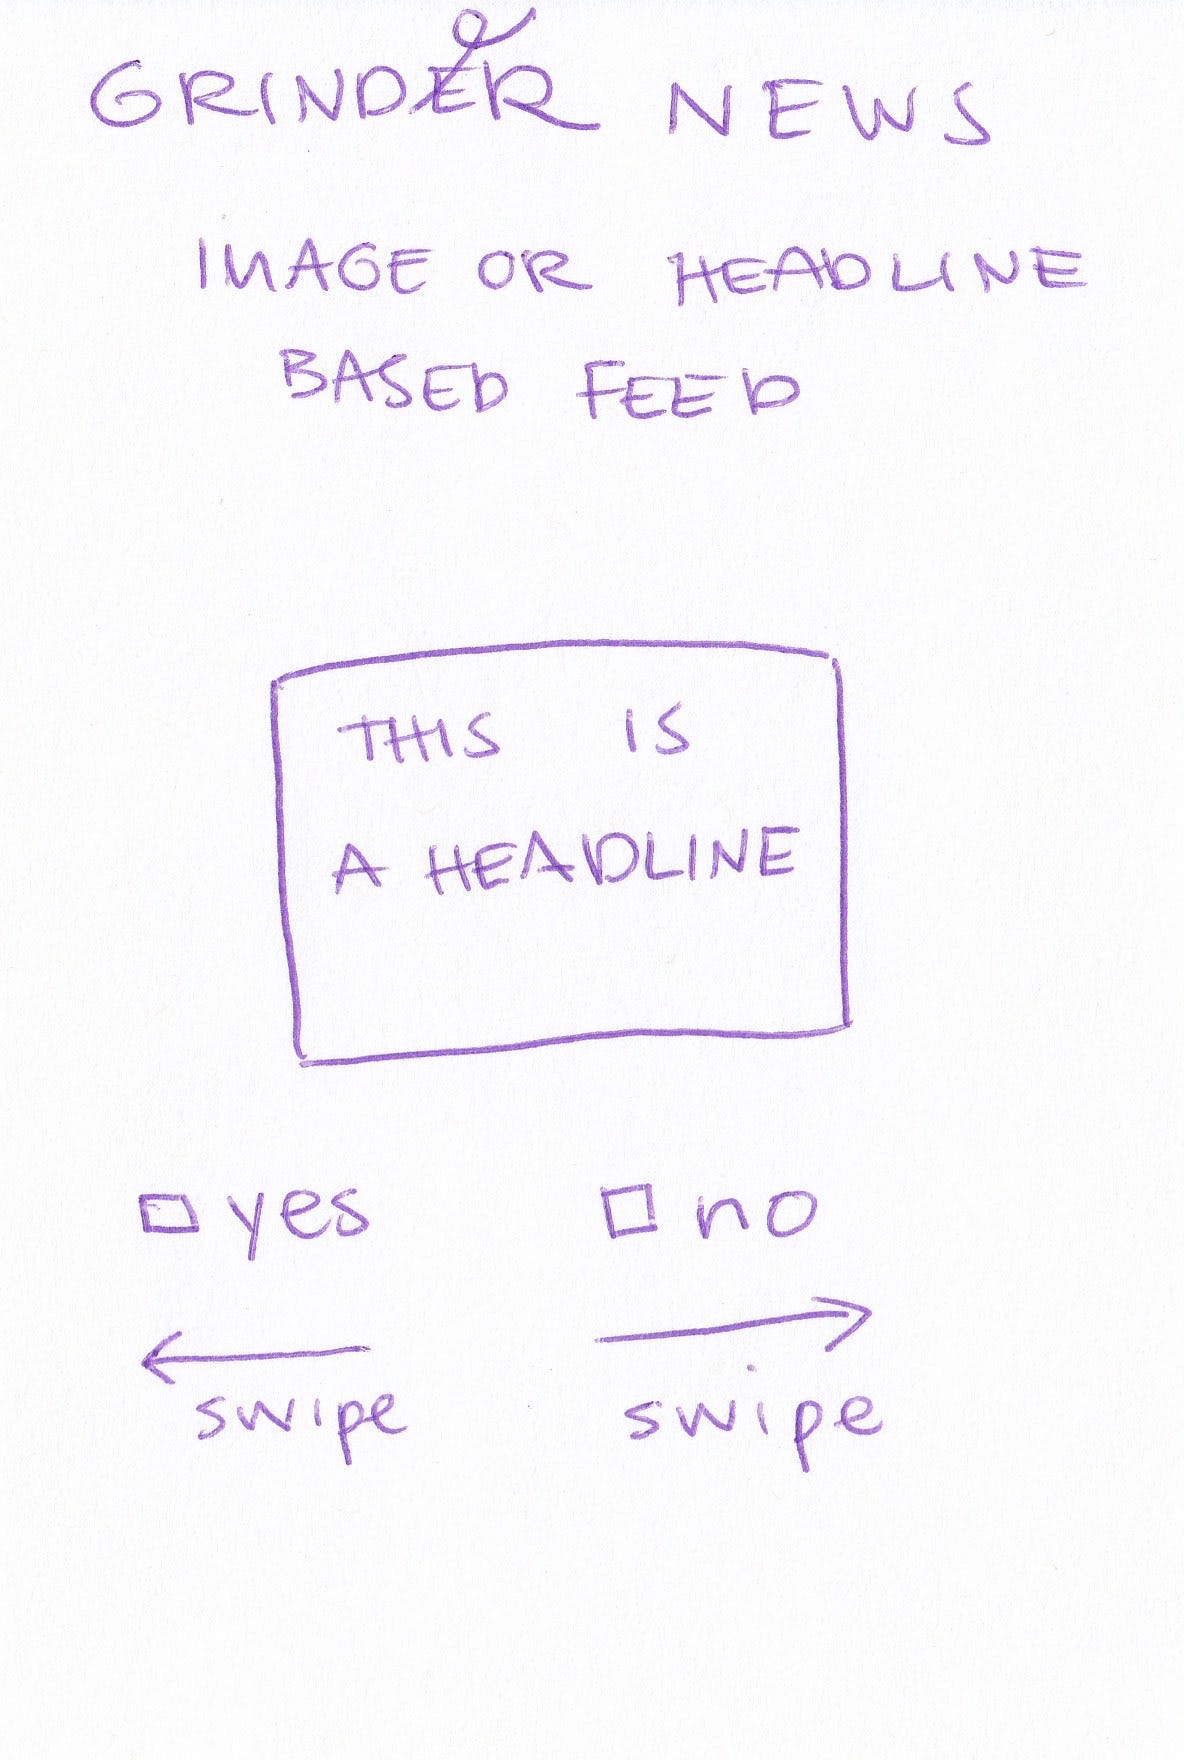 GRINDER NEWS
IMAGE OR HEADLINE
BASED FEED
THIS IS
A HEADLINE
yes no
swipe swipe